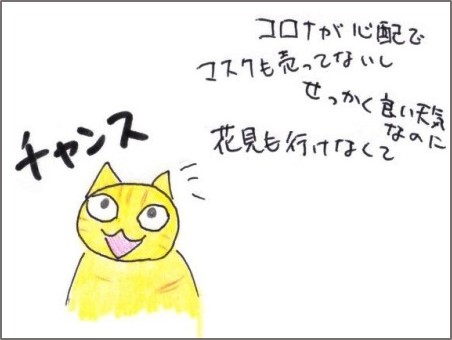 コロナが心配で
マスクも売ってないし
せっかく良い天気
なのに
花見も行けなくて
チャンス